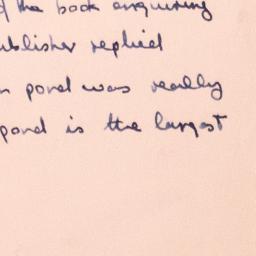 the book enquiring
ublisher replied
n pond was really
pond is the largest